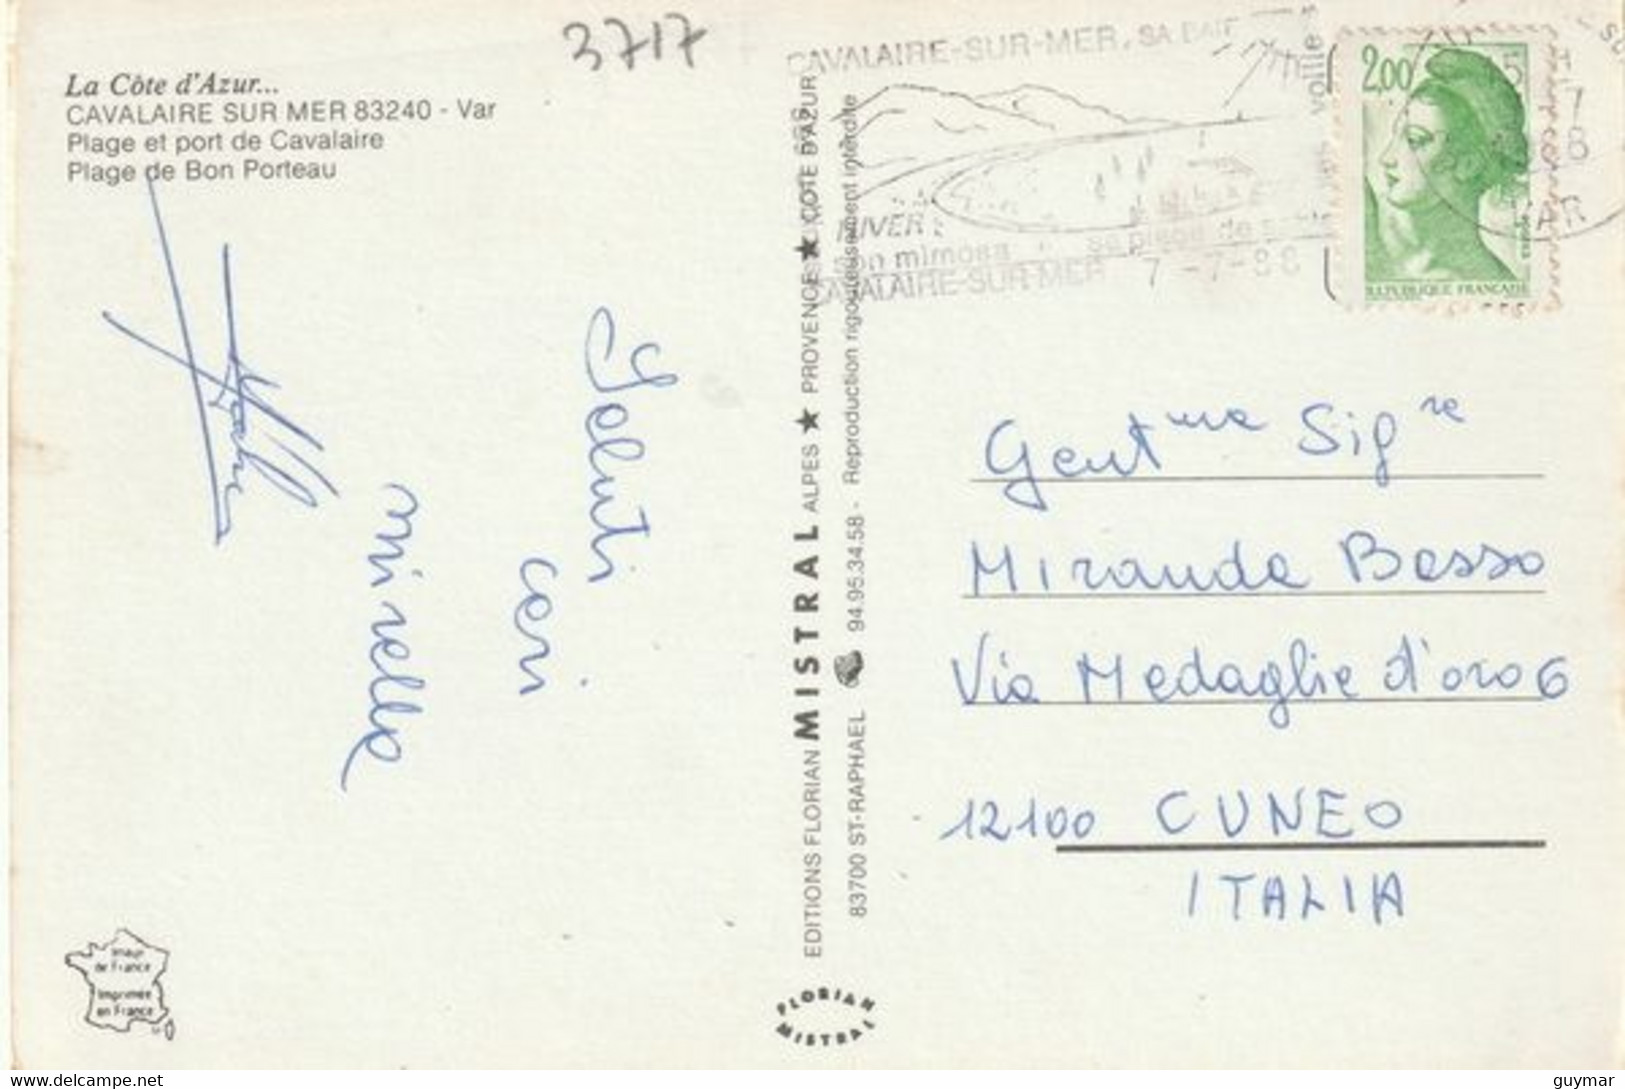 3717
La Côte d'Azur...
CAVALAIRE SUR MER 83240 - Var
Plage et port de Cavalaire
Plage de Bon Porteau
CAVALAIRE-SUR-MER, SA BAIE
voile
HIVER :
son mimosa
sa plage de
CAVALAIRE-SUR-MER
7-7-88
2,00
REPUBLIQUE FRANÇAISE
Saluti
cari
Mirelle
EDITIONS FLORIAN MISTRAL ALPES ★ PROVENCE ★ COTE D'AZUR
83700 ST-RAPHAEL 94.95.34.58 - Reproduction rigoureusement interdite
Gent.me Sig.re
Miranda Basso
Via Medaglie d'oro 6
12100 CUNEO
ITALIA
Image
de France
Imprimée
en France
FLORIAN
MISTRAL
delcampe.net
guymar